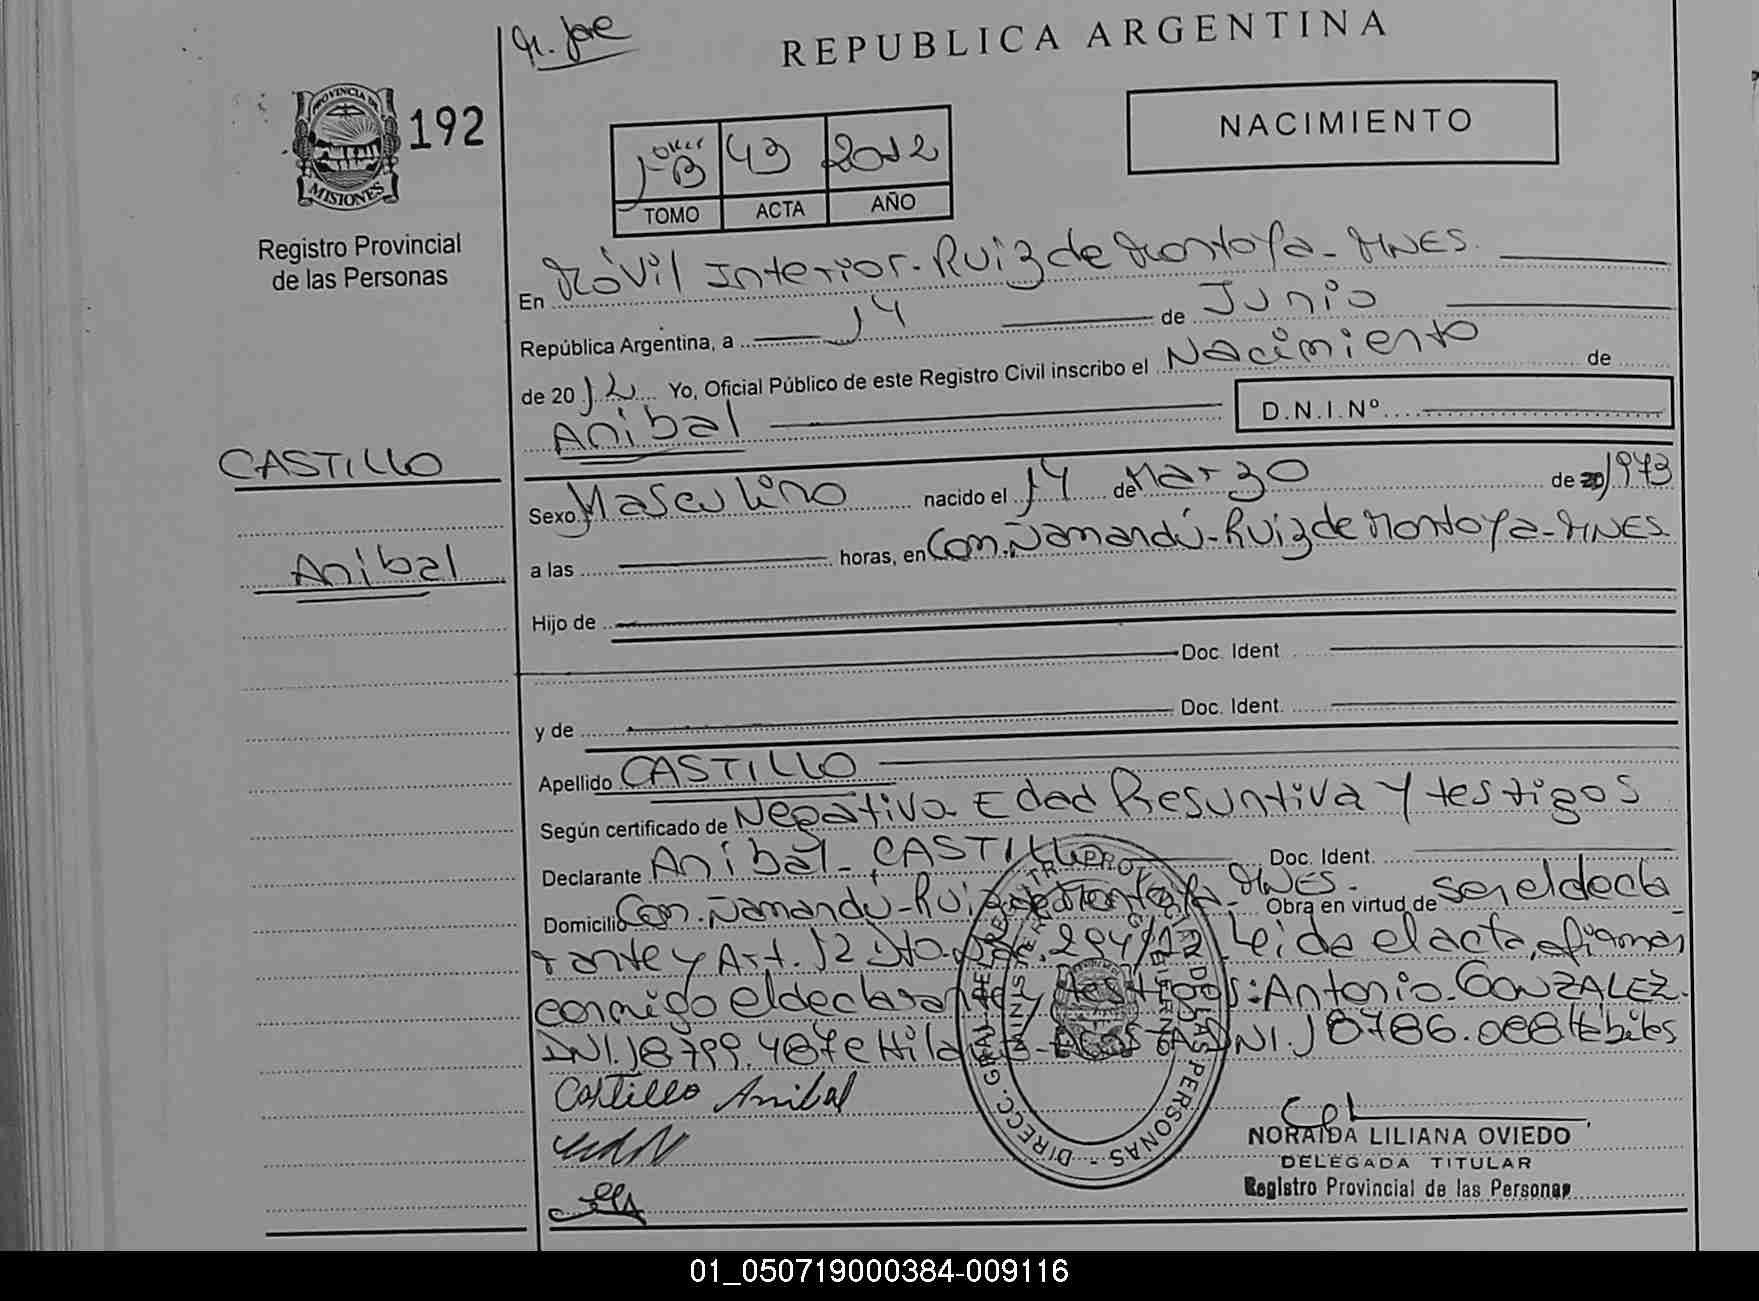 REPUBLICA ARGENTINA
PROVINCIA DE
MISIONES
192
Registro Provincial
de las Personas
NACIMIENTO
43 2012
TOMO ACTA AÑO
En Móvil Interior-Ruiz de Montoya-MNES.
República Argentina, a 14 de Junio
de 2012 Yo, Oficial Público de este Registro Civil inscribo el Nacimiento de
Anibal D.N.I. Nº
CASTILLO
Anibal
Sexo Masculino nacido el 14 de Marzo de 20 1973
a las horas, en Com. Ñamandú-Ruiz de Montoya-MNES
Hijo de
Doc. Ident
y de Doc. Ident.
Apellido CASTILLO
Según certificado de Negativa Edad Presuntiva y testigos
Declarante Anibal-CASTILLO Doc. Ident.
Domicilio Com. Ñamandú-Ruiz de Montoya-MNES. Obra en virtud de ser el decla
rante y Art. 12 Dto. 294/12 Leída el acta, firman
conmigo el declarante y testigos: Antonio-GONZALEZ.
DNI.18799.487 e DNI.18786.088 Hábiles
Castillo Anibal
NORAIDA LILIANA OVIEDO
DELEGADA TITULAR
Registro Provincial de las Personas
01_050719000384-009116